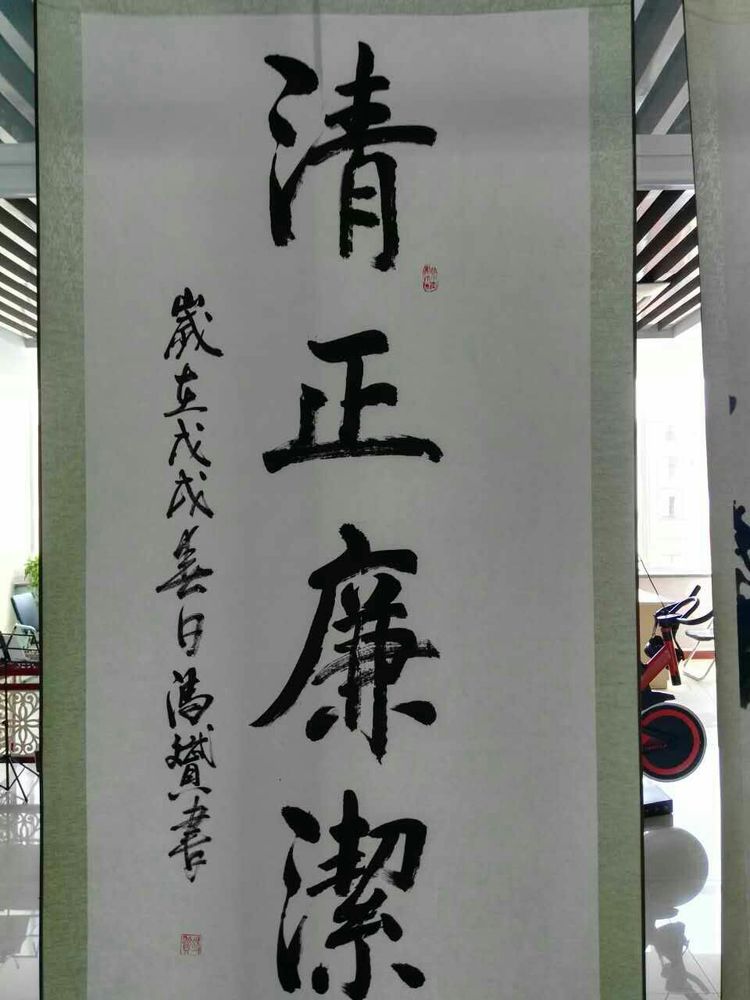 清正廉潔
歲在戊戌春日馮贇書